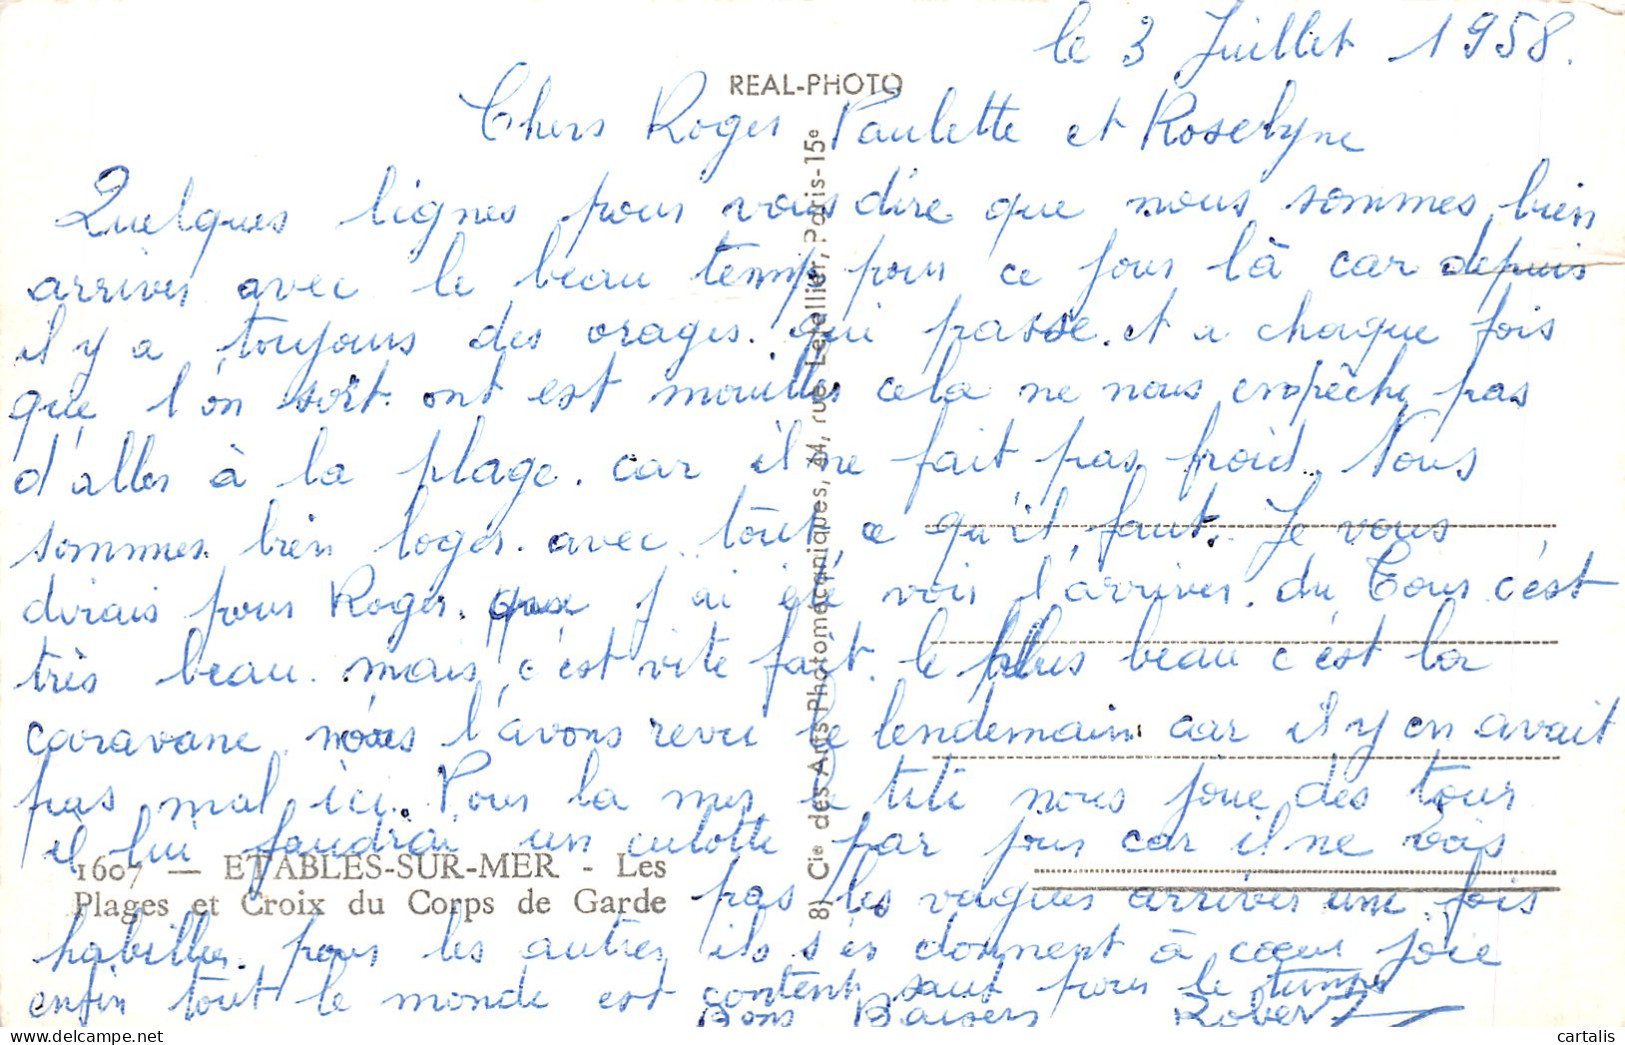 le 3 Juillet 1958.
REAL-PHOTO
Chers Roger Paulette et Roselyne
Quelques lignes pour vous dire que nous sommes bien
arriver avec le beau temp pour ce jour là car depuis
il y a toujours des orages. qui passe. et a chaque fois
que l'on sort. ont est mouilles cela ne nous empêche pas
d'aller à la plage. car il ne fait pas froid. Nous
sommes. bien loger. avec tout ce qu'il faut. Je vous
dirais pour Roger. que j'ai été voir l'arriver. du Tour c'est
très beau. mais c'est vite fait. le plus beau c'est la
caravane nous l'avons revu le lendemain car il y en avait
pas mal ici. Pour la mer le titi nous joue des tour
il lui faudrai un culotte par jour car il ne vois
pas les vagues arriver une fois
habiller. pour les autres ils s'en donnent à cœur joie
enfin tout le monde est content sauf pour le temps
Bons Baisers Robert
1607 — ETABLES-SUR-MER - Les
Plages et Croix du Corps de Garde
8) Cie des Arts Photomécaniques, 44, rue Letellier, Paris-15e
cartalis